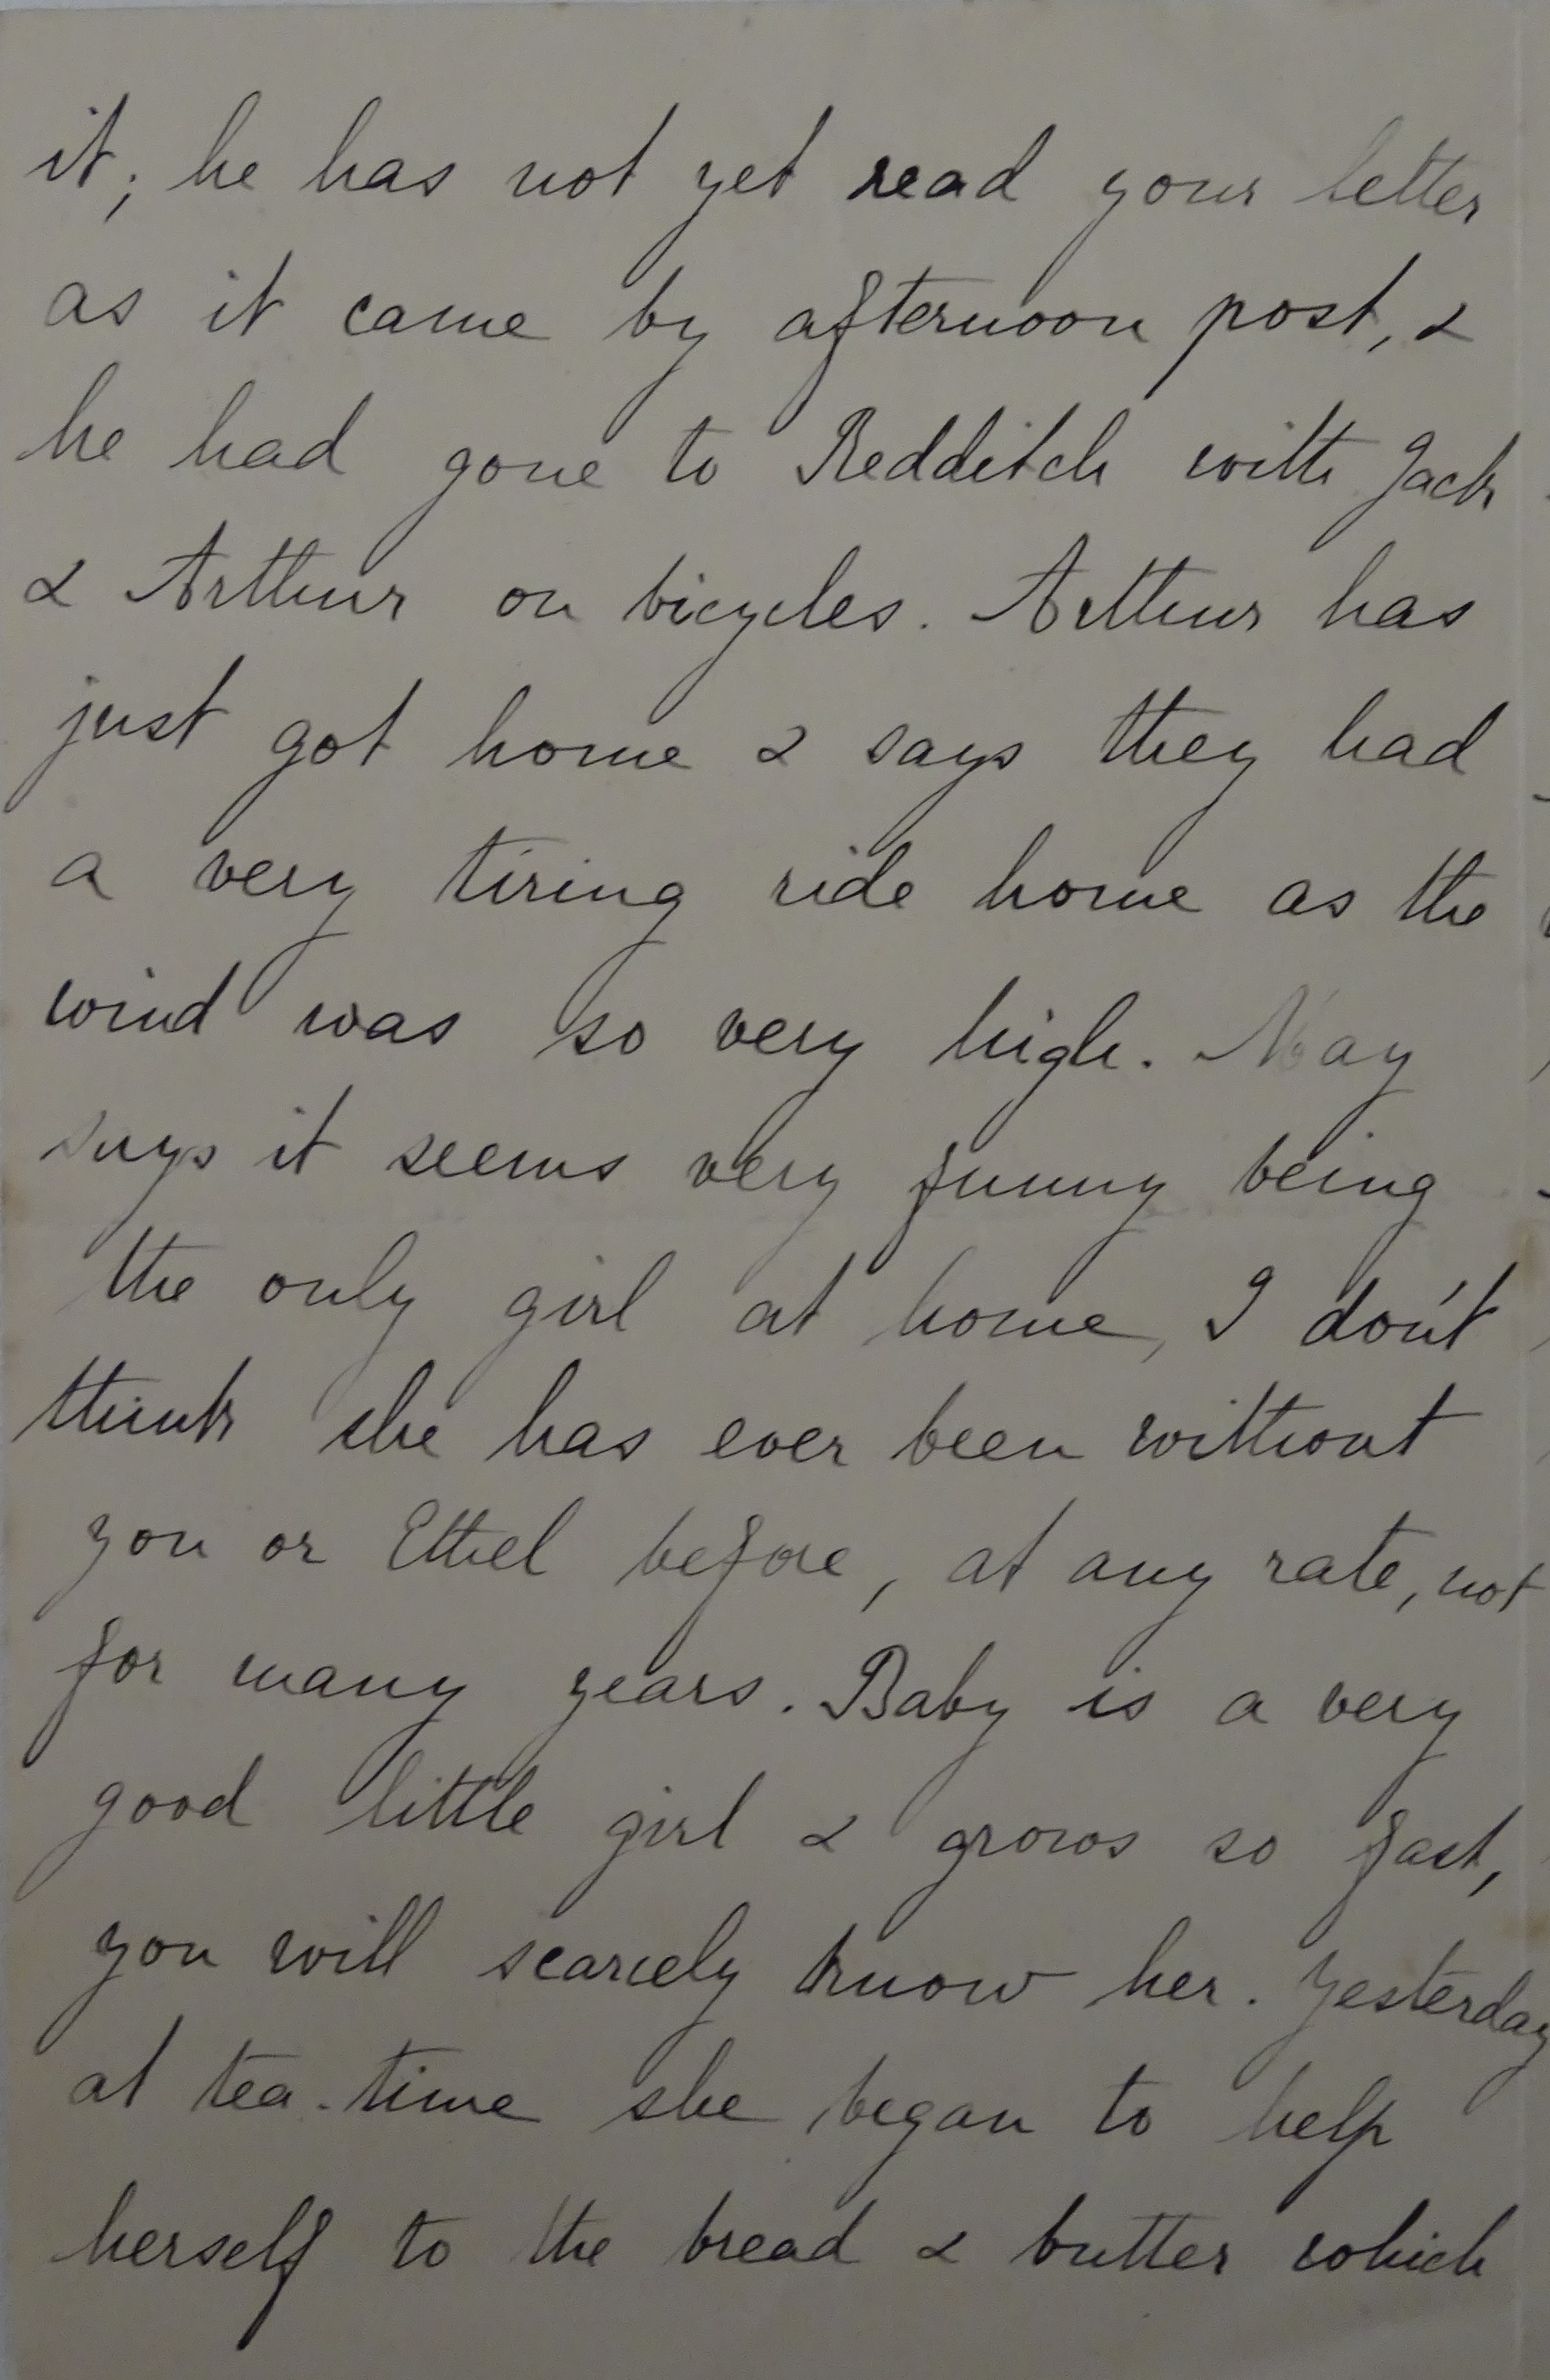 it; he has not yet read your letter
as it came by afternoon post, &
he had gone to Redditch with Jack
& Arthur on bicycles. Arthur has
just got home & says they had
a very tiring ride home as the
wind was so very high. May
says it seems very funny being
the only girl at home, I don't
think she has ever been without
you or Ethel before, at any rate, not
for many years. Baby is a very
good little girl & grows so fast,
you will scarcely know her. Yesterday
at tea-time she began to help
herself to the bread & butter which